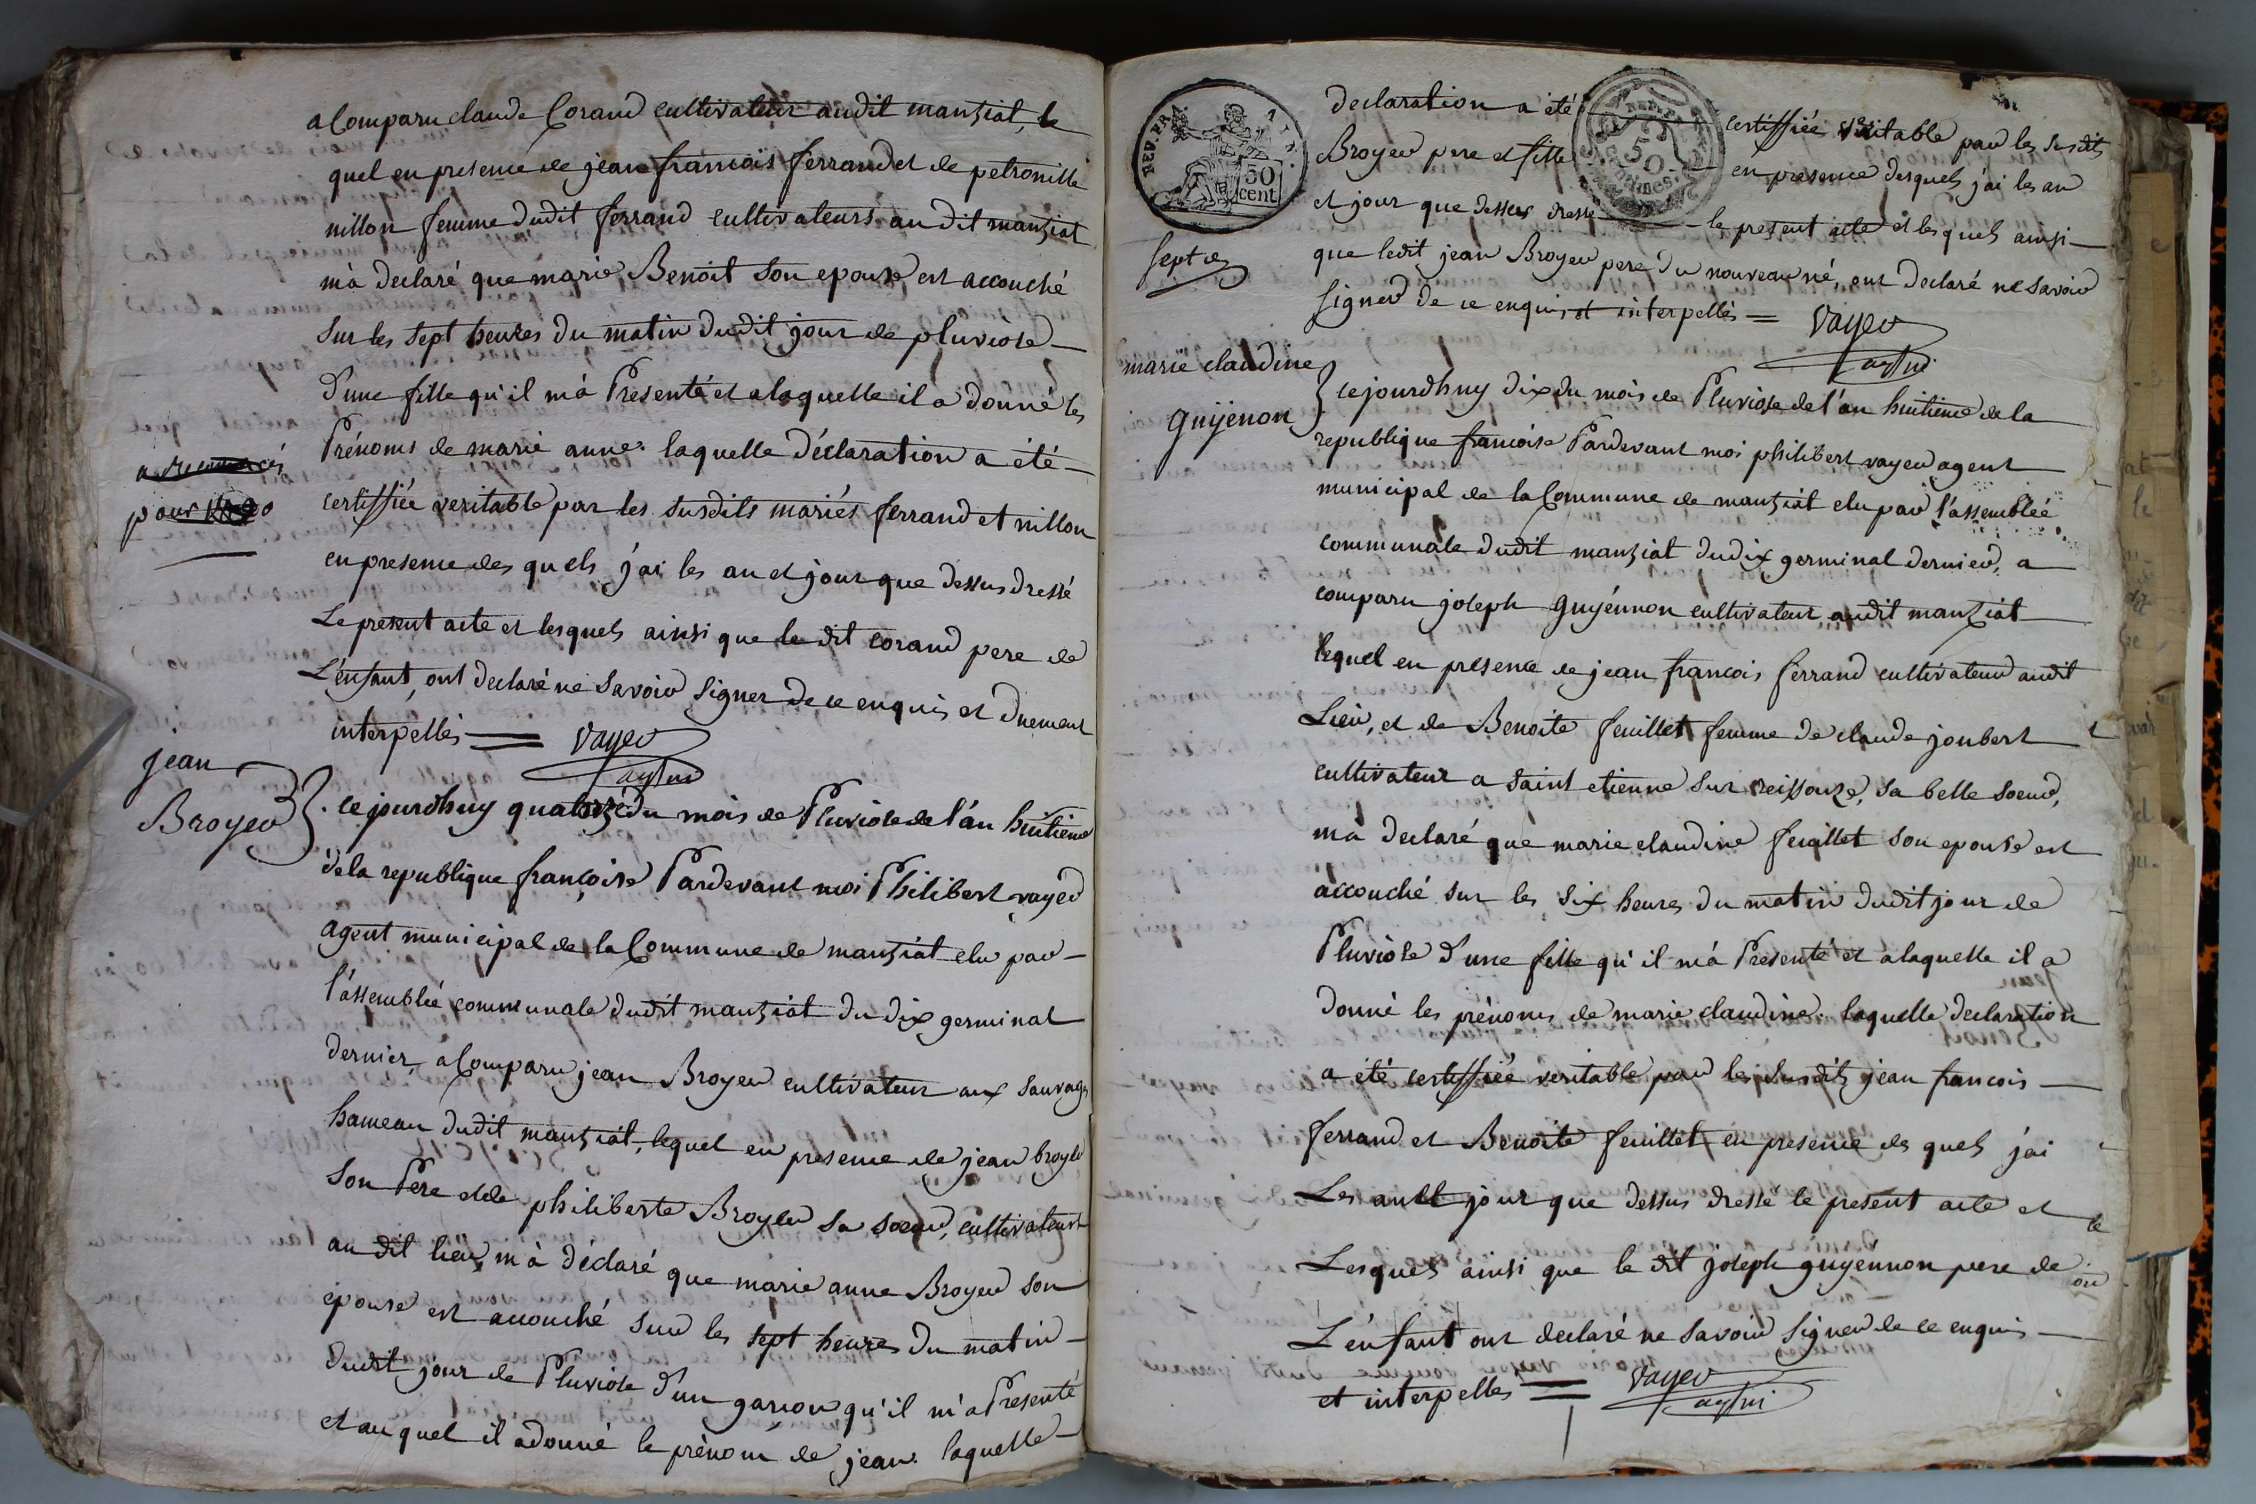 a Comparu claude Corand cultivateur audit manziat, le
quel en presence de jean francois ferrand et de petronille
nillon femme dudit ferrand cultivateurs au dit manziat
m'a declaré que marie Benoit son epouse est accouché
sur les sept heures du matin dudit jour de pluviose
d'une fille qu'il m'a Presenté et alaquelle il a donné les
Prénoms de marie anne. laquelle déclaration a été
certiffiée veritable par les susdits mariés ferrand et nillon
en presence des quels j'ai les an et jour que dessus dressé
Le present acte et lesquels ainsi que le dit corand pere de
L'enfant, ont declaré ne savoir signer de ce enquis et duement
interpellés = vayer
agent mpal
pour
jean
Broyer
cejourdhuy quatorze du mois de Pluviose de l'an huitieme
de la republique françoise Pardevant moi Philibert vayer
agent municipal de la Commune de manziat elu par
l'assemblée communale dudit manziat du dix germinal
dernier, a Comparu jean Broyer cultivateur aux sauvages
hameau dudit manziat, lequel en presence de jean broyer
son Pere et de philiberte Broyer sa soeur, cultivateurs
au dit lieu, m'a déclaré que marie anne Broyer son
epouse est accouché sur les sept heures du matin
dudit jour de Pluviose d'un garcon qu'il m'a Presenté
et au quel il a donné le prénom de jean. laquelle
REP. FRA.
50
cent
50
centimes
sept
declaration a été certiffiée veritable par les susdits
Broyer pere et fille en presence desquels j'ai les an
et jour que dessus dressé le present acte et lesquels ainsi
que ledit jean Broyer pere du nouveau né, ont declaré ne savoir
signer de ce enquis et interpellés = vayer
marie claudine
guyenon
cejourdhuy dix du mois de Pluviose de l'an huitieme de la
republique francoise Pardevant moi philibert vayer agent
municipal de la Commune de manziat elu par l'assemblée
communale dudit manziat du dix germinal dernier, a
comparu joseph guyénnon cultivateur audit manziat
lequel en presence de jean francois ferrand cultivateur audit
Lieu, et de Benoite feuillet femme de claude joubert
cultivateur a saint etienne sur reissouze, sa belle soeur,
m'a declaré que marie claudine feuillet son epouse est
accouché sur les six heures du matin dudit jour de
Pluviose d'une fille qu'il m'a Presenté et a laquelle il a
donné les prénoms de marie claudine. laquelle declaration
a été certiffiée veritable par les susdits jean francois
ferrand et Benoite feuillet en presence des quels j'ai
Les an et jour que dessus dressé le present acte et
Lesquels ainsi que le dit joseph guyénnon pere de
L'enfant ont declaré ne savoir signer de ce enquis
et interpellés = vayer